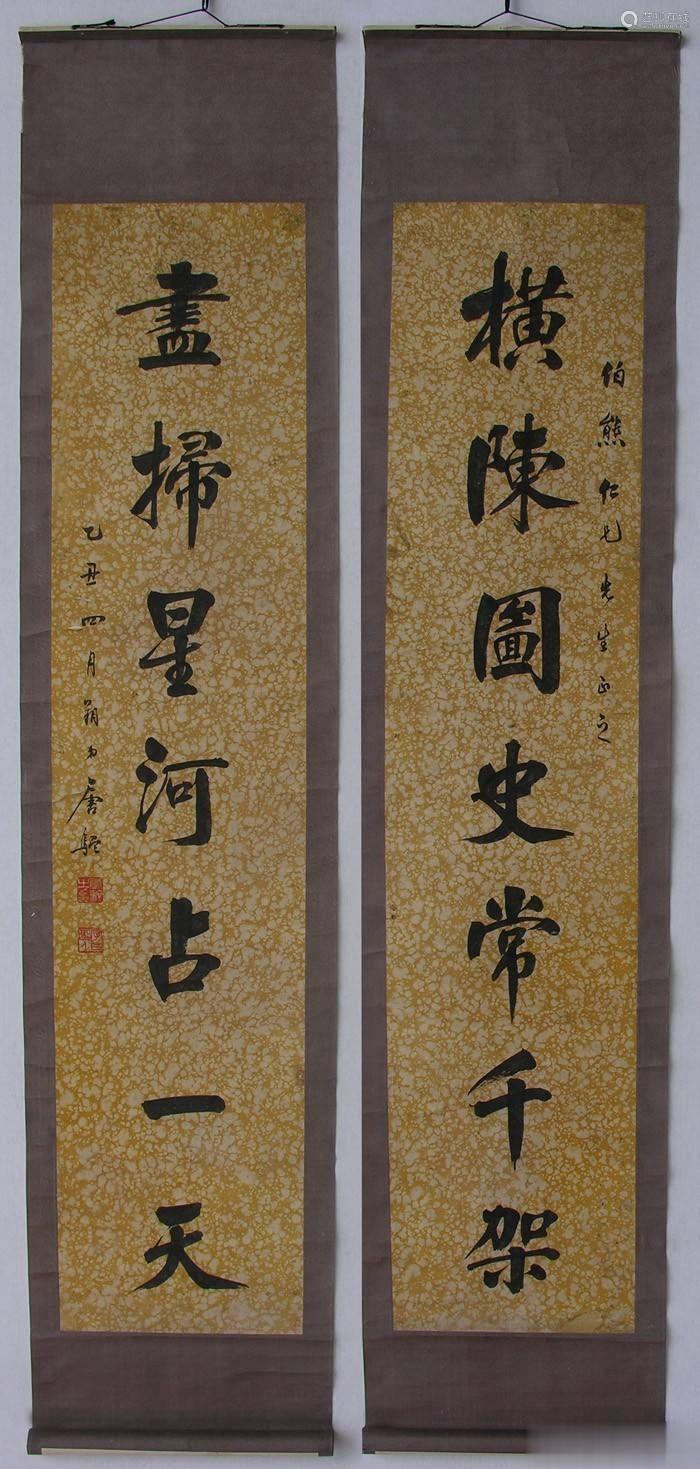 伯熊仁兄先生正之
橫陳圖史常千架
盡掃星河占一天
乙丑四月朔 唐駝